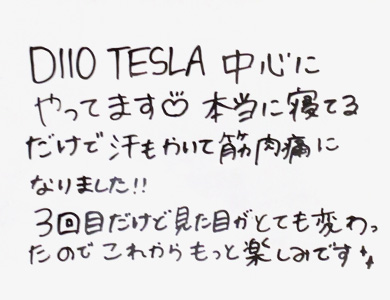 D110 TESLA 中心に
やってます♡ 本当に寝てる
だけで汗もかいて筋肉痛に
なりました!!
3回目だけど見た目がとても変わっ
たのでこれからもっと楽しみです✨